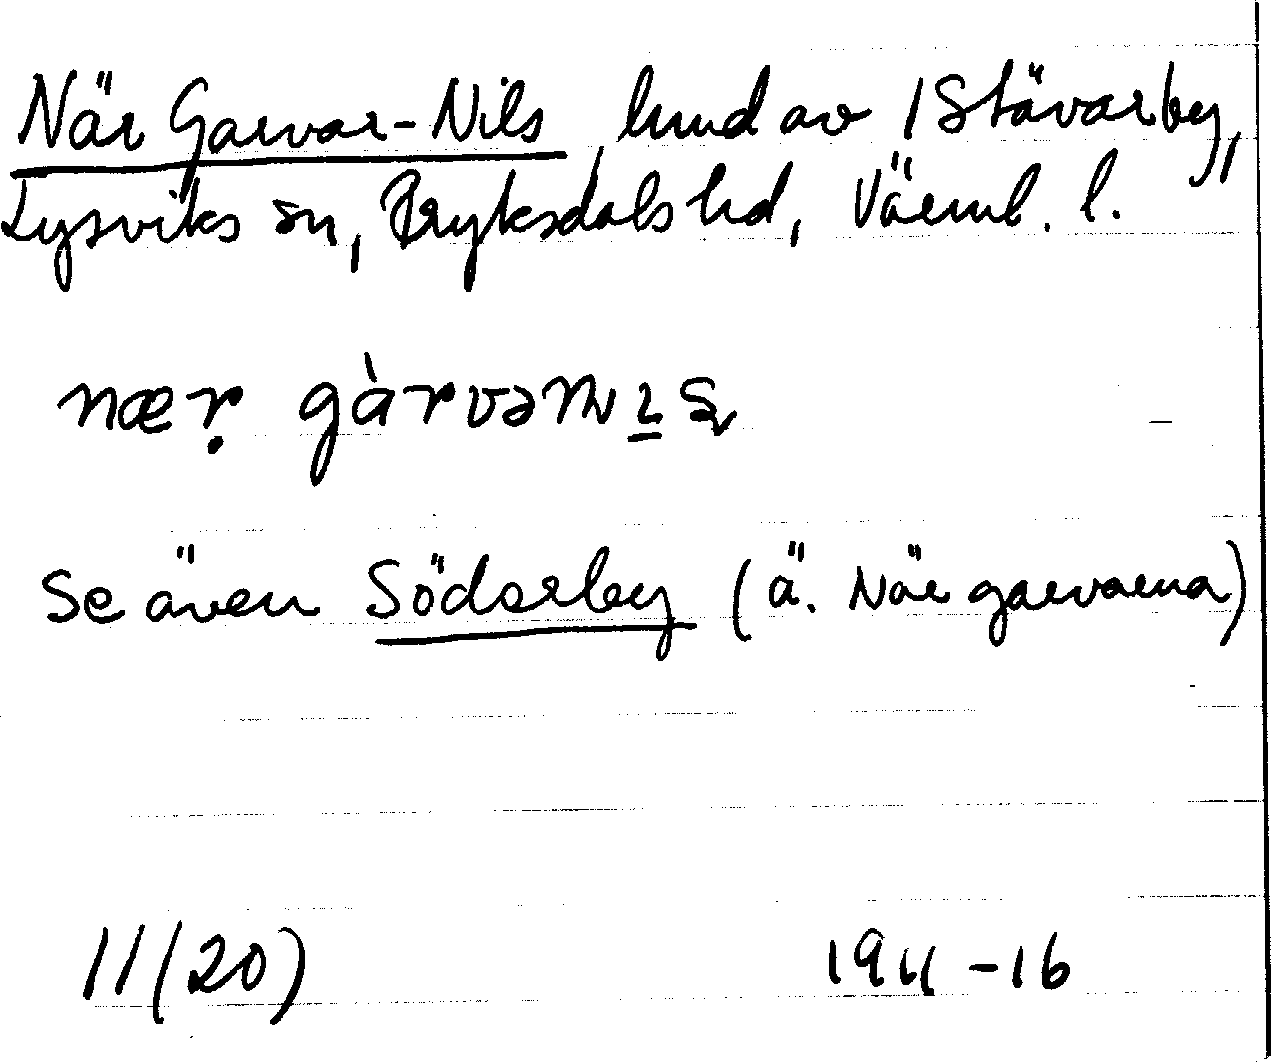 När Garvar-Nils, hmd av 1 Stävarby,
Lysviks sn, Fryksdals hd, Värml. l.
nær gàrvanɩs
Se även Söderby (ä. När garvarna)
11(20) 1911-16